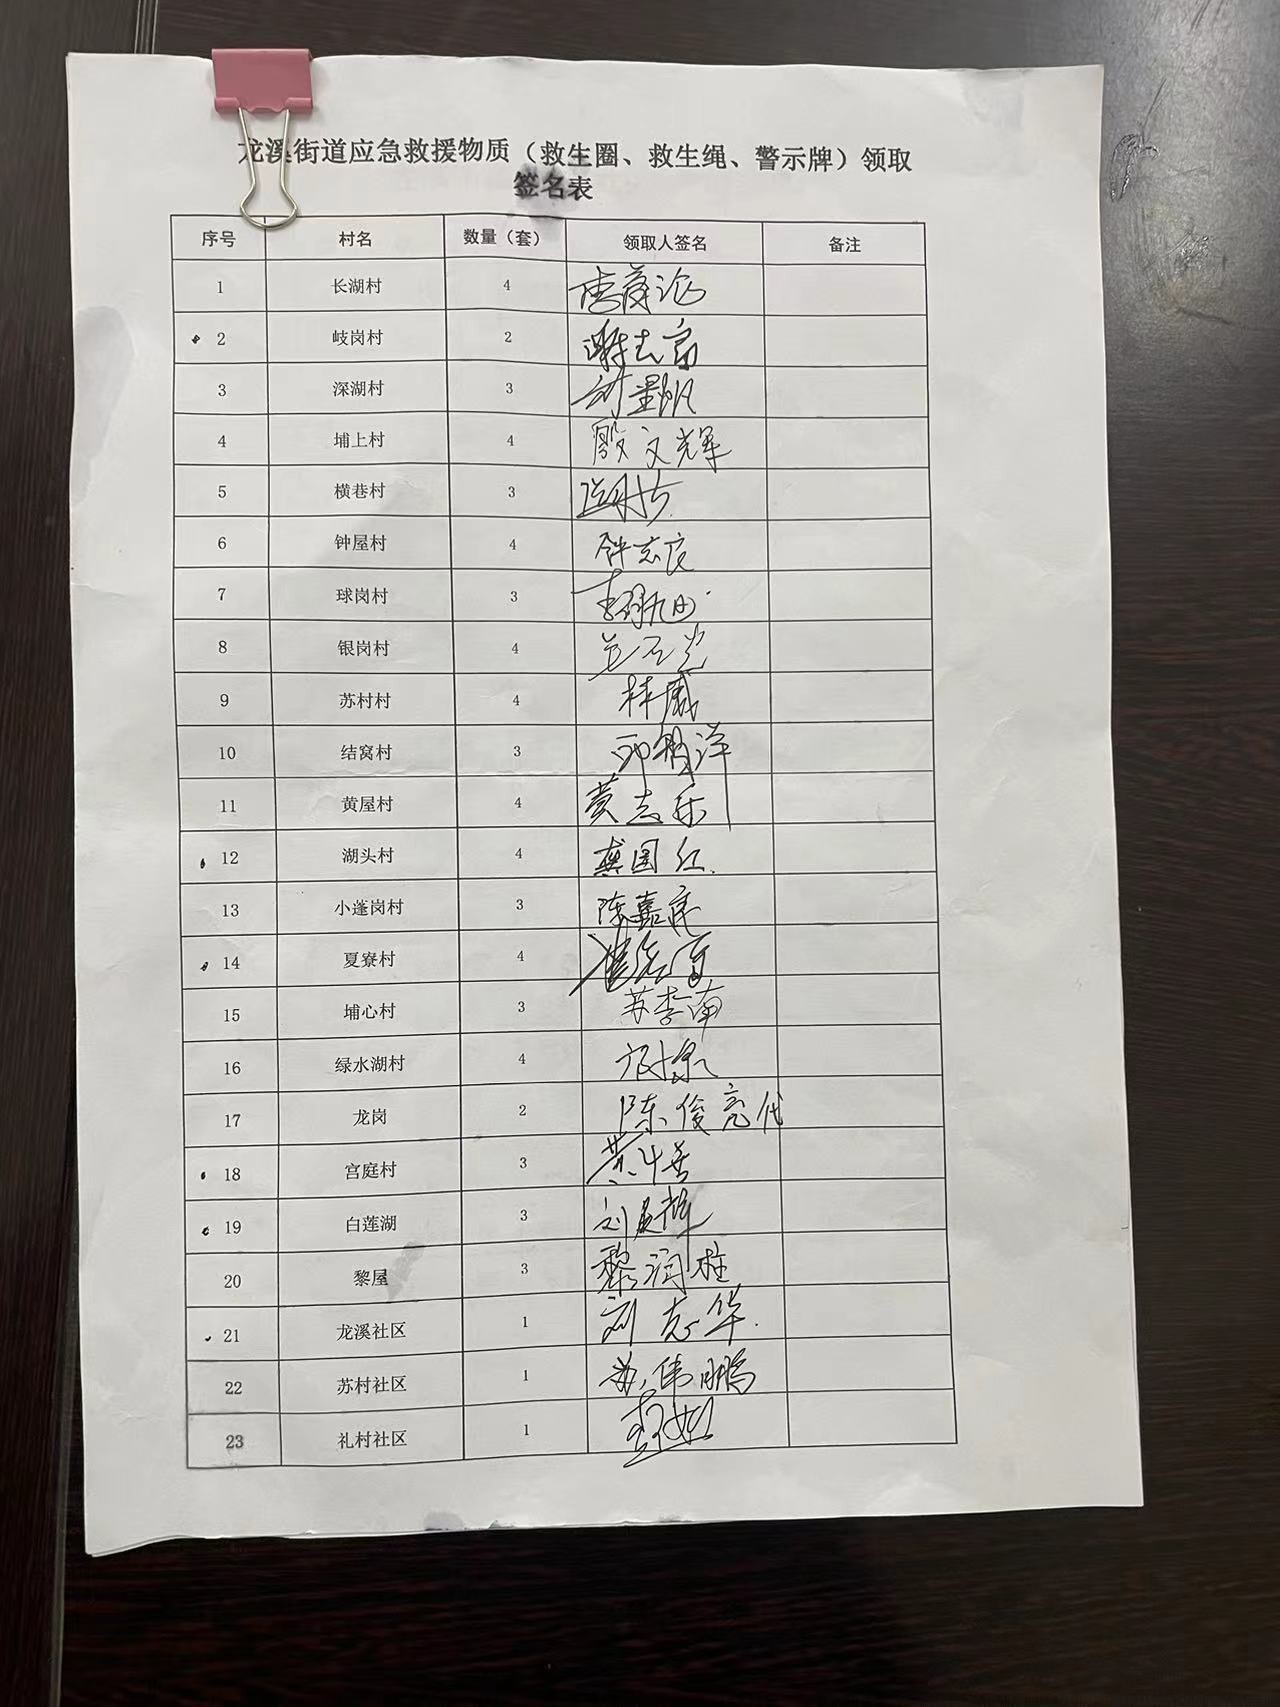 龙溪街道应急救援物质（救生圈、救生绳、警示牌）领取
签名表
序号 村名 数量（套） 领取人签名 备注
1 长湖村 4
2 岐岗村 2 谢志高
3 深湖村 3
4 埔上村 4 殷文辉
5 横巷村 3
6 钟屋村 4 钟志良
7 球岗村 3
8 银岗村 4
9 苏村村 4 林威
10 结窝村 3
11 黄屋村 4 黄志乐
12 湖头村 4 龚国红
13 小蓬岗村 3 陈嘉亮
14 夏寮村 4
15 埔心村 3 苏李南
16 绿水湖村 4
17 龙岗 2 陈俊亮代
18 宫庭村 3
19 白莲湖 3
20 黎屋 3 黎润柱
21 龙溪社区 1 刘志华
22 苏村社区 1 苏伟鹏
23 礼村社区 1